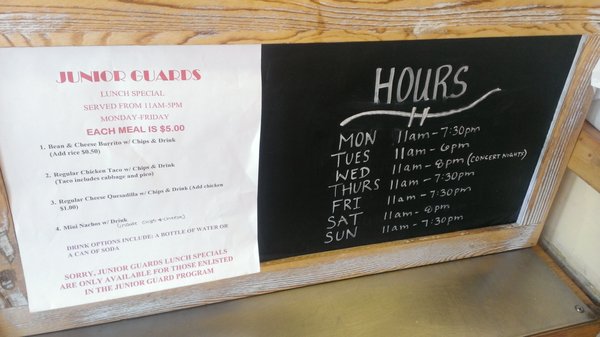 JUNIOR GUARDS
LUNCH SPECIAL
SERVED FROM 11AM-5PM
MONDAY-FRIDAY
EACH MEAL IS $5.00
1. Bean & Cheese Burrito w/ Chips & Drink
(Add rice $0.50)
2. Regular Chicken Taco w/ Chips & Drink
(Taco includes cabbage and pico)
3. Regular Cheese Quesadilla w/ Chips & Drink (Add chicken
$1.00)
4. Mini Nachos w/ Drink
DRINK OPTIONS INCLUDE: A BOTTLE OF WATER OR
A CAN OF SODA
SORRY, JUNIOR GUARDS LUNCH SPECIALS
ARE ONLY AVAILABLE FOR THOSE ENLISTED
IN THE JUNIOR GUARD PROGRAM
HOURS
MON 11am - 7:30pm
TUES 11am - 6pm
WED 11am - 8pm (CONCERT NIGHTS)
THURS 11am - 7:30pm
FRI 11am - 7:30pm
SAT 11am - 8pm
SUN 11am - 7:30pm